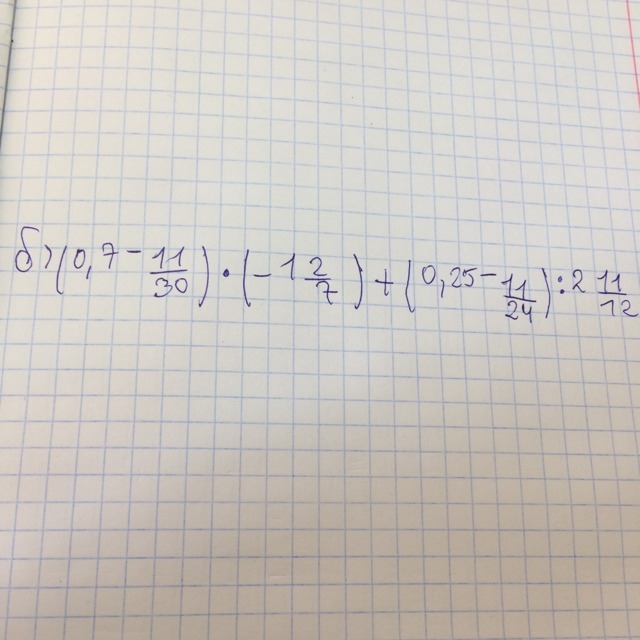 б) (0,7 - 11/30) · (-1 2/7) + (0,25 - 11/24) : 2 11/12